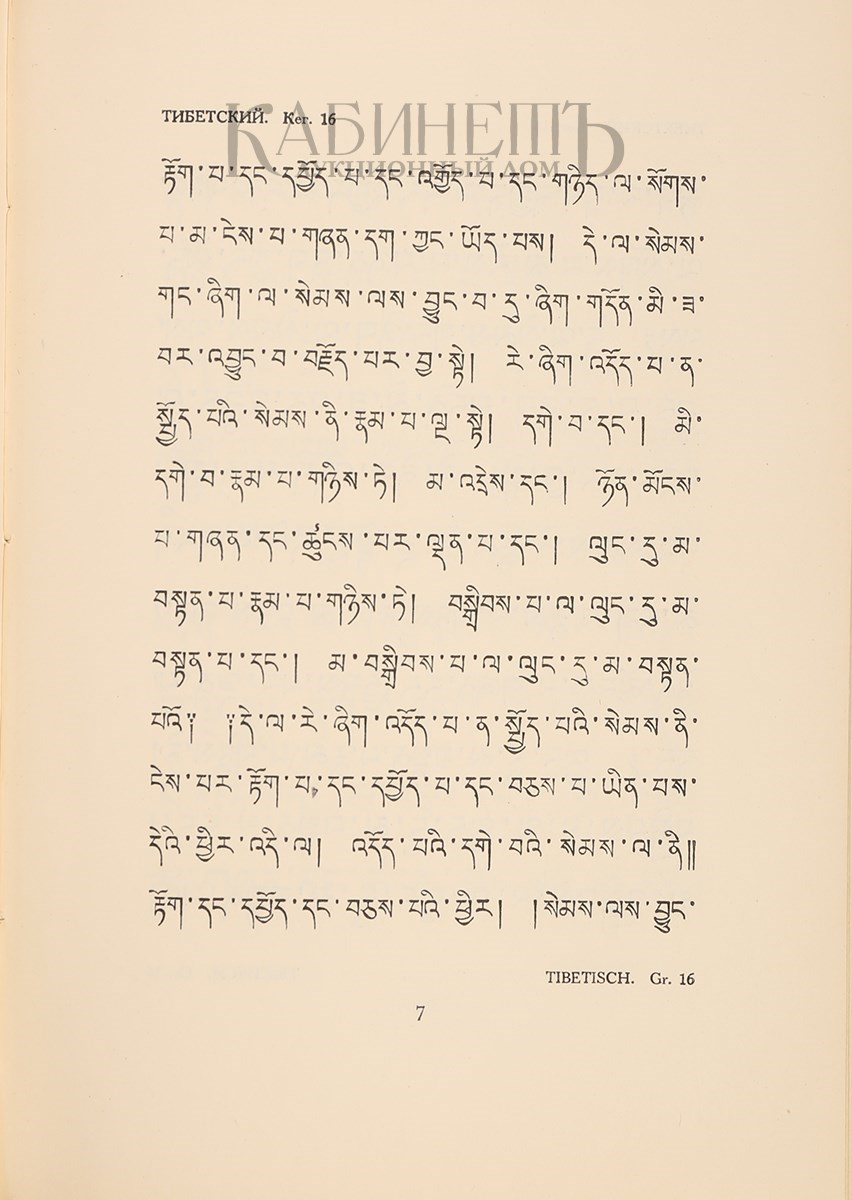 ТИБЕТСКИЙ. Кег. 16
КАБИНЕТЪ
АУКЦИОННЫЙ ДОМ
རྟོག་པ་དང་དཔྱོད་པ་དང་འགྱོད་པ་དང་གཉིད་ལ་སོགས་
པ་མ་ངེས་པ་གཞན་དག་ཀྱང་ཡོད་པས། དེ་ལ་སེམས་
གང་ཞིག་ལ་སེམས་ལས་བྱུང་བ་དུ་ཞིག་གདོན་མི་ཟ་
བར་འབྱུང་བ་བརྗོད་པར་བྱ་སྟེ། རེ་ཞིག་འདོད་པ་ན་
སྤྱོད་པའི་སེམས་ནི་རྣམ་པ་ལྔ་སྟེ། དགེ་བ་དང་། མི་
དགེ་བ་རྣམ་པ་གཉིས་ཏེ། མ་འདྲེས་དང་། ཉོན་མོངས་
པ་གཞན་དང་ཚུངས་པར་ལྡན་པ་དང་། ལུང་དུ་མ་
བསྟན་པ་རྣམ་པ་གཉིས་ཏེ། བསྒྲིབས་པ་ལ་ལུང་དུ་མ་
བསྟན་པ་དང་། མ་བསྒྲིབས་པ་ལ་ལུང་དུ་མ་བསྟན་
པའོ༑ ༑དེ་ལ་རེ་ཞིག་འདོད་པ་ན་སྤྱོད་པའི་སེམས་ནི་
ངེས་པར་རྟོག་པ་དང་དཔྱོད་པ་དང་བཅས་པ་ཡིན་པས་
དེའི་ཕྱིར་འདི་ལ། འདོད་པའི་དགེ་བའི་སེམས་ལ་ནི༎
རྟོག་དང་དཔྱོད་དང་བཅས་པའི་ཕྱིར། །སེམས་ལས་བྱུང་
TIBETISCH. Gr. 16
7